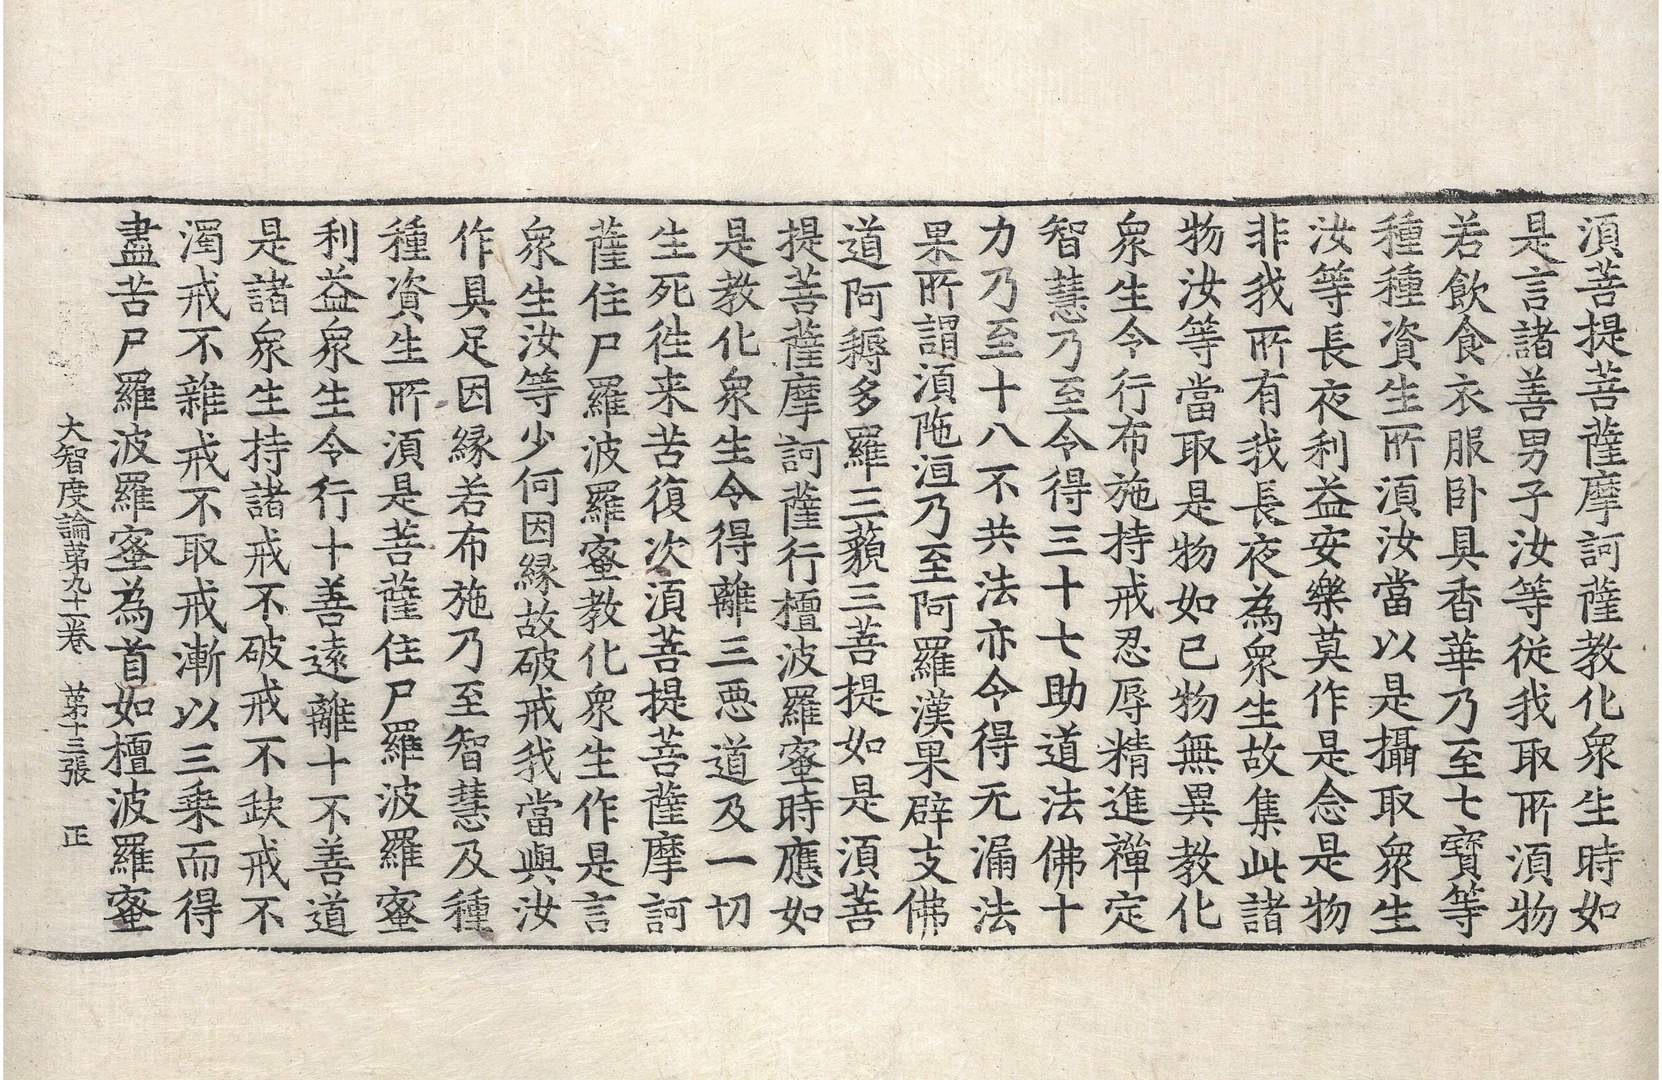 湏菩提菩薩摩訶薩教化衆生時如
是言諸善男子汝等從我取所湏物
若飲食衣服卧具香華乃至七寶等
種種資生所湏汝當以是攝取衆生
汝等長夜利益安樂莫作是念是物
非我所有我長夜為衆生故集此諸
物汝等當取是物如已物無異教化
衆生令行布施持戒忍辱精進禪定
智慧乃至令得三十七助道法佛十
力乃至十八不共法亦令得无漏法
果所謂湏陁洹乃至阿羅漢果辟支佛
道阿耨多羅三藐三菩提如是湏菩
提菩薩摩訶薩行檀波羅蜜時應如
是教化衆生令得離三惡道及一切
生死徃来苦復次湏菩提菩薩摩訶
薩住尸羅波羅蜜教化衆生作是言
衆生汝等少何因緣故破戒我當與汝
作具足因緣若布施乃至智慧及種
種資生所湏是菩薩住尸羅波羅蜜
利益衆生令行十善遠離十不善道
是諸衆生持諸戒不破戒不缺戒不
濁戒不雜戒不取戒漸以三乗而得
盡苦尸羅波羅蜜為首如檀波羅蜜
大智度論第九十一卷 第十三張 正